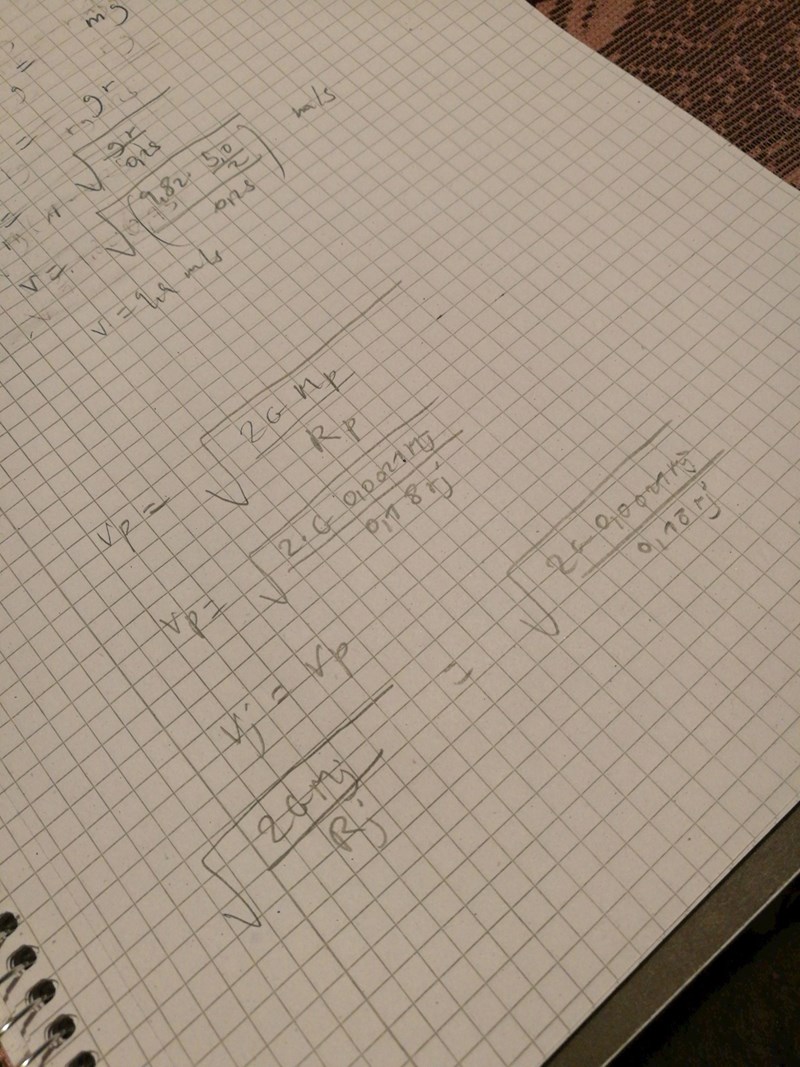 mg
=
= mgr
√(gr/0,25)
v = √((9,82 · 5,0/2)/0,25) m/s
v = 9,9 m/s
vp = √(2G Mp/Rp)
vp = √(2·G 0,0021Mj/0,18rj)
vj = vp
√(2GMj/Rj) = √(2G 0,0021Mj/0,18rj)